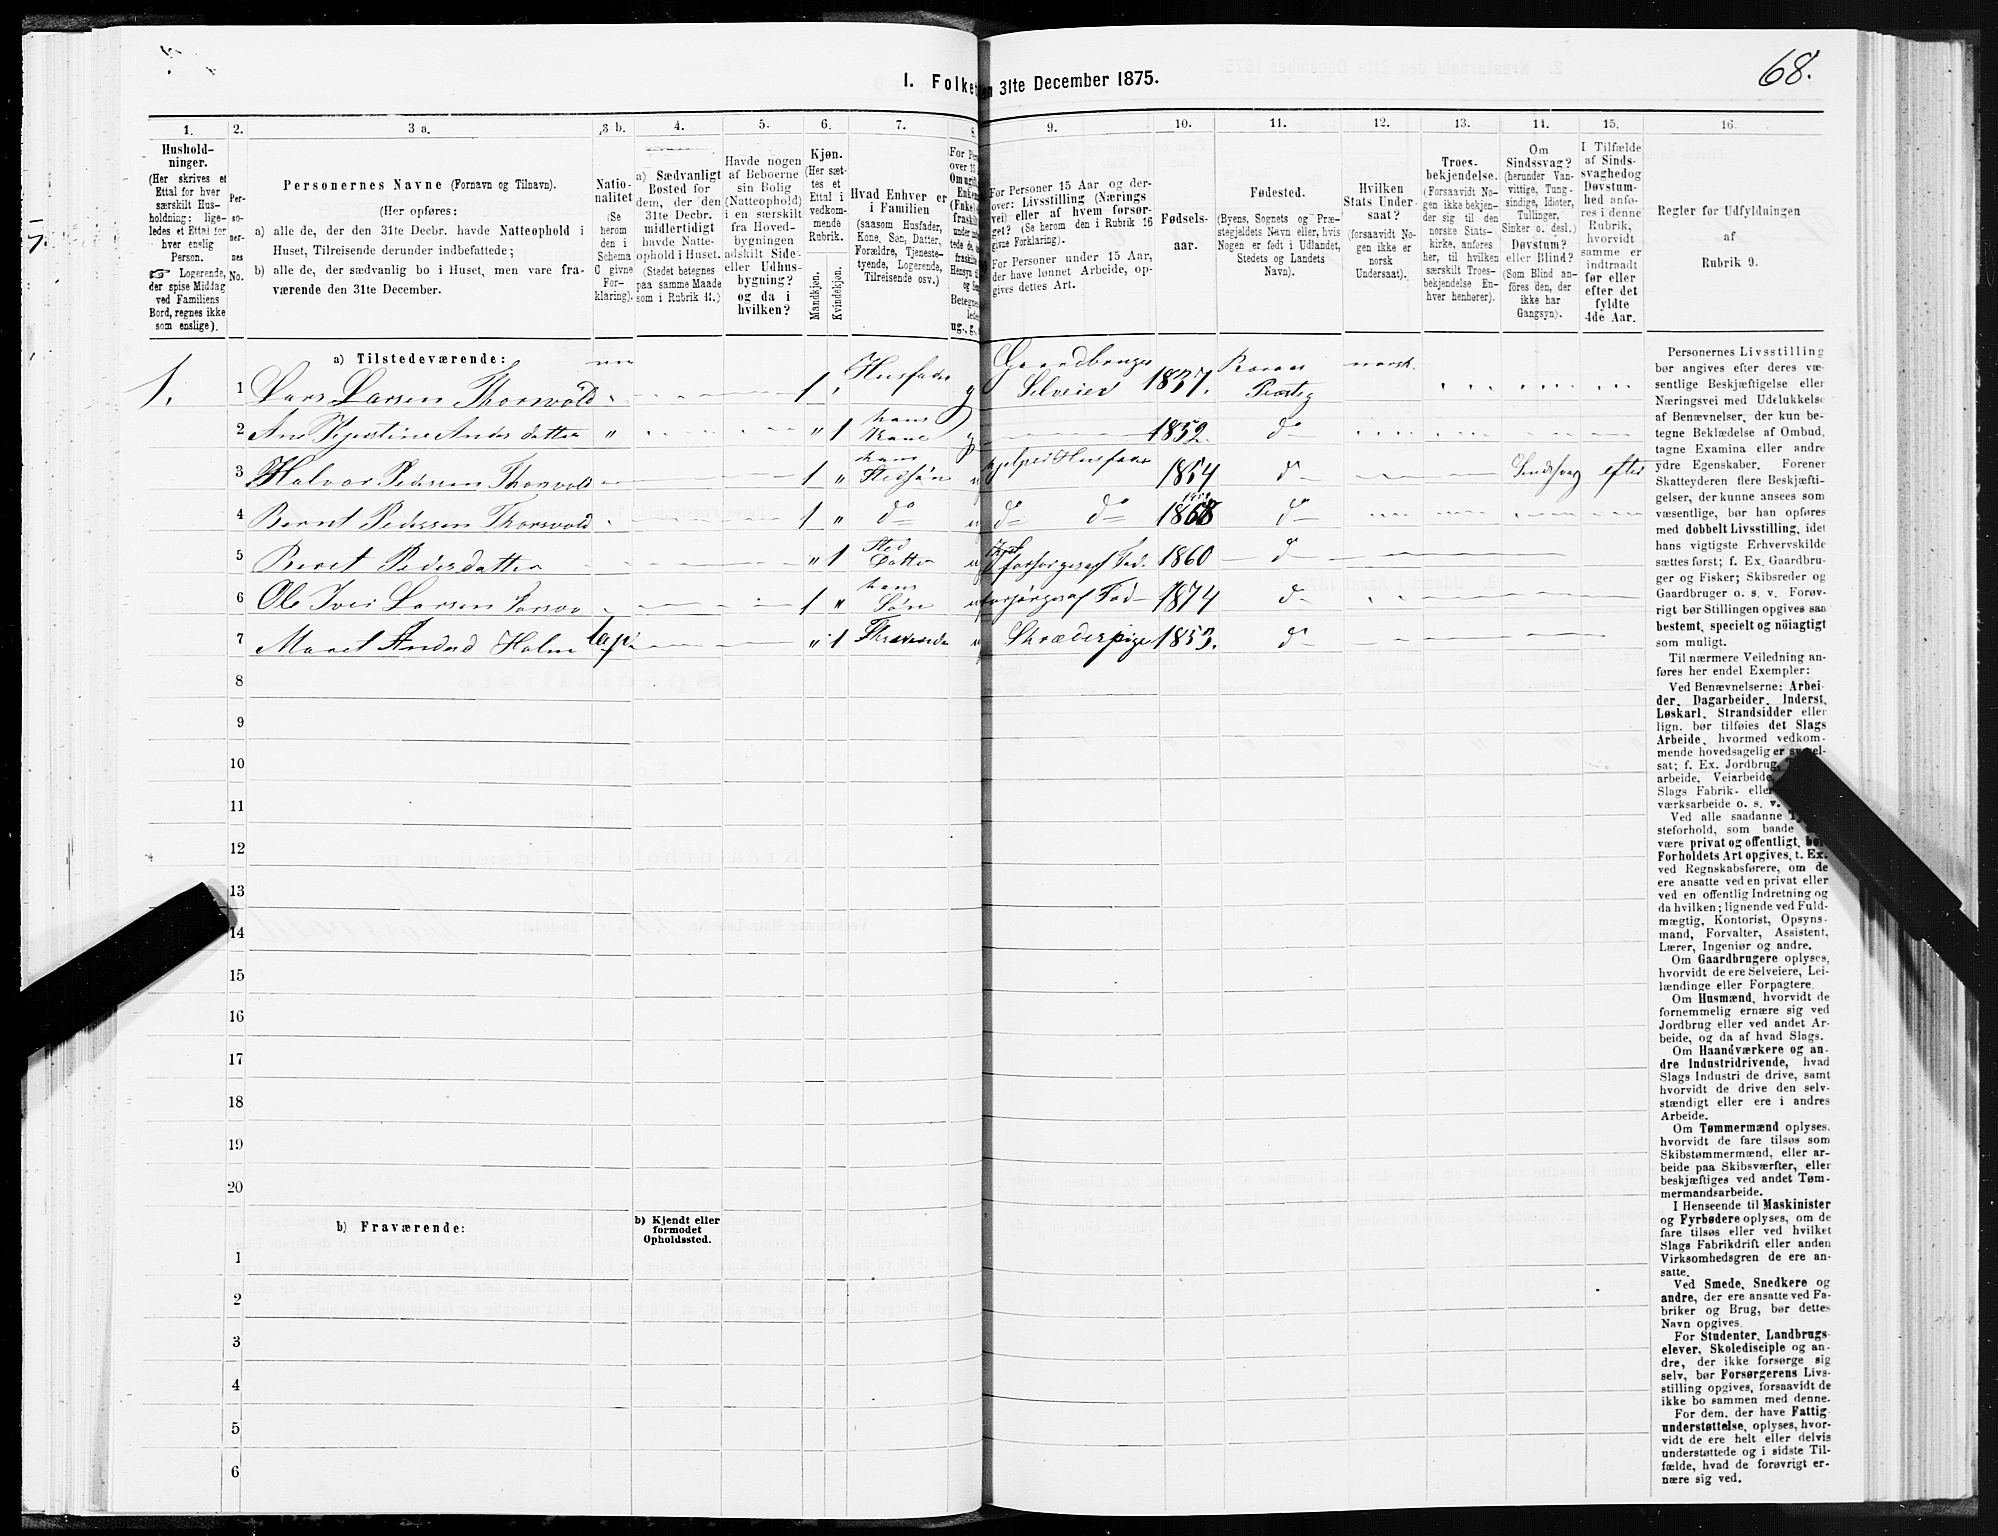 68.
I. Folket
en 31te December 1875.
1. 2. 3 a. 3 b. 4. 5. 6. 7. 8. 9. 10. 11. 12. 13. 14. 15. 16.
Hushold-
ninger.
(Her skrives et
Ettal for hver
særskilt Hus-
holdning; lige-
ledes et Ettal for
hver enslig
Person.
☞ Logerende,
der spise Middag
ved Familiens
Bord, regnes ikke
som enslige).
Per-
so-
ner-
nes
No.
Personernes Navne (Fornavn og Tilnavn).
(Her opføres:
a) alle de, der den 31te Decbr. havde Natteophold i
Huset, Tilreisende derunder indbefattede;
b) alle de, der sædvanlig bo i Huset, men vare fra-
værende den 31te December.
Natio-
nalitet
(Se
herom
den i
Schema
C givne
For-
klaring).
a) Sædvanligt
Bosted for
dem, der den
31te Decbr.
midlertidigt
havde Natte-
ophold i Huset.
(Stedet betegnes
paa samme Maade
som i Rubrik 11.)
Havde nogen
af Beboerne
sin Bolig
(Natteophold)
i en særskilt
fra Hoved-
bygningen
adskilt Side-
eller Udhus-
bygning?
og da i
hvilken?
Kjøn.
(Her sæt-
tes et
Ettal i
vedkom-
mende
Rubrik.
Mandkjøn.
Kvindekjøn.
Hvad Enhver er
i Familien
(saasom Husfader,
Kone, Søn, Datter,
Forældre, Tjeneste-
tyende, Logerende,
Tilreisende osv.)
For Personer 15 Aar og der-
over: Livsstilling (Nærings
vei) eller af hvem forsør-
get? (Se herom den i Rubrik 16
givne Forklaring).
For Personer under 15 Aar,
der have lønnet Arbeide, op-
gives dettes Art.
Fødsels-
aar.
Fødested.
(Byens, Sognets og Præ-
stegjeldets Navn eller, hvis
Nogen er født i Udlandet,
Stedets og Landets
Navn).
Hvilken
Stats Under-
saat?
(forsaavidt No-
gen ikke er
norsk
Undersaat).
Troes-
bekjendelse.
(Forsaavidt No-
gen ikke bekjen-
der sig til den
norske Stats-
kirke, anføres
her, til hvilken
særskilt Troes-
bekjendelse En-
hver henhører).
Om
Sindssvag?
(herunder Van-
vittige, Tung-
sindige, Idioter,
Tullinger,
Sinker o. desl.)
Døvstum?
eller Blind?
(Som Blind an-
føres den, der
ikke har
Gangsyn).
I Tilfælde
af Sinds-
svaghed og
Døvstum-
hed anfø-
res i denne
Rubrik,
hvorvidt
samme er
indtraadt
før eller
efter det
fyldte
4de Aar.
Regler for Udfyldningen
af
Rubrik 9.
a) Tilstedeværende:
1. 1 Lars Larsen Thorsvold 1 Husfader g Gaardbruger Selveier 1837. Roraas Præsteg norsk.
2 Ane Kjerstine Anders datter " " 1 hans Kone g 1832. do
3 Halvor Pedersen Thorsvold 1 " hans Stedsøn hjelper Husfader 1854 do Sindssvag efter
4 Bernt Pedersen Thorsvold 1 " do do do 1858 do
5 Beret Pedersdatter " 1 Sted Datter forsørges af Fad. 1860 do
6 Ole Iver Larsen 1 " hans Søn forsørges af Fad 1874 do
7 Maret Andersd Holm lap " 1 Skræderpige 1853. do
8
9
10
11
12
13
14
15
16
17
18
19
20
b) Fraværende:
b) Kjendt eller
formodet
Opholdssted.
1
2
3
4
5
6
Personernes Livsstilling
bør angives efter deres væ-
sentlige Beskjæftigelse eller
Næringsvei med Udelukkelse
af Benævnelser, der kun be-
tegne Beklædelse af Ombud,
tagne Examina eller andre
ydre Egenskaber. Forener
Skatteyderen flere Beskjæfti-
gelser, der kunne ansees som
væsentlige, bør han opføres
med dobbelt Livsstilling, idet
hans vigtigste Erhvervskilde
sættes først; f. Ex. Gaardbru-
ger og Fisker; Skibsreder og
Gaardbruger o. s. v. Forøv-
rigt bør Stillingen opgives saa
bestemt, specielt og nöiagtigt
som muligt.
Til nærmere Veiledning an-
føres her endel Exempler:
Ved Benævnelserne: Arbei-
der, Dagarbeider, Inderst,
Løskarl, Strandsidder eller
lign. bør tilføies det Slags
Arbeide, hvormed vedkom-
mende hovedsagelig er syssel-
sat; f. Ex. Jordbrug,
arbeide, Veiarbeide,
Slags Fabrik- eller
værksarbeide o. s. v.
Ved alle saadanne
steforhold, som baade
være privat og offentligt, bør
Forholdets Art opgives, t. Ex.
ved Regnskabsførere, om de
ere ansatte ved en privat eller
ved en offentlig Indretning og
da hvilken; lignende ved Fuld-
mægtig, Kontorist, Opsyns-
mand, Forvalter, Assistent,
Lærer, Ingeniør og andre.
Om Gaardbrugere oplyses,
hvorvidt de ere Selveiere, Lei-
lændinge eller Forpagtere.
Om Husmænd, hvorvidt de
fornemmelig ernære sig ved
Jordbrug eller ved andet Ar-
beide, og da af hvad Slags.
Om Haandværkere og an-
dre Industridrivende, hvad
Slags Industri de drive, samt
hvorvidt de drive den selv-
stændigt eller ere i andres
Arbeide.
Om Tømmermænd oplyses,
hvorvidt de fare tilsøs som
Skibstømmermænd, eller ar-
beide paa Skibsværfter, eller
beskjæftiges ved andet Tøm-
mermandsarbeide.
I Henseende til Maskinister
og Fyrbødere oplyses, om de
fare tilsøs eller ved hvilket
Slags Fabrikdrift eller anden
Virksomhedsgren de ere an-
satte.
Ved Smede, Snedkere og
andre, der ere ansatte ved Fa-
briker og Brug, bør dettes
Navn opgives.
For Studenter, Landbrugs-
elever, Skoledisciple og an-
dre, der ikke forsørge sig
selv, bør Forsørgerens Livs-
stilling opgives, forsaavidt de
ikke bo sammen med denne.
For dem, der have Fattig-
understøttelse, oplyses, hvor-
vidt de ere helt eller delvis
understøttede og i sidste Til-
fælde, hvad de forøvrigt er-
nære sig ved.